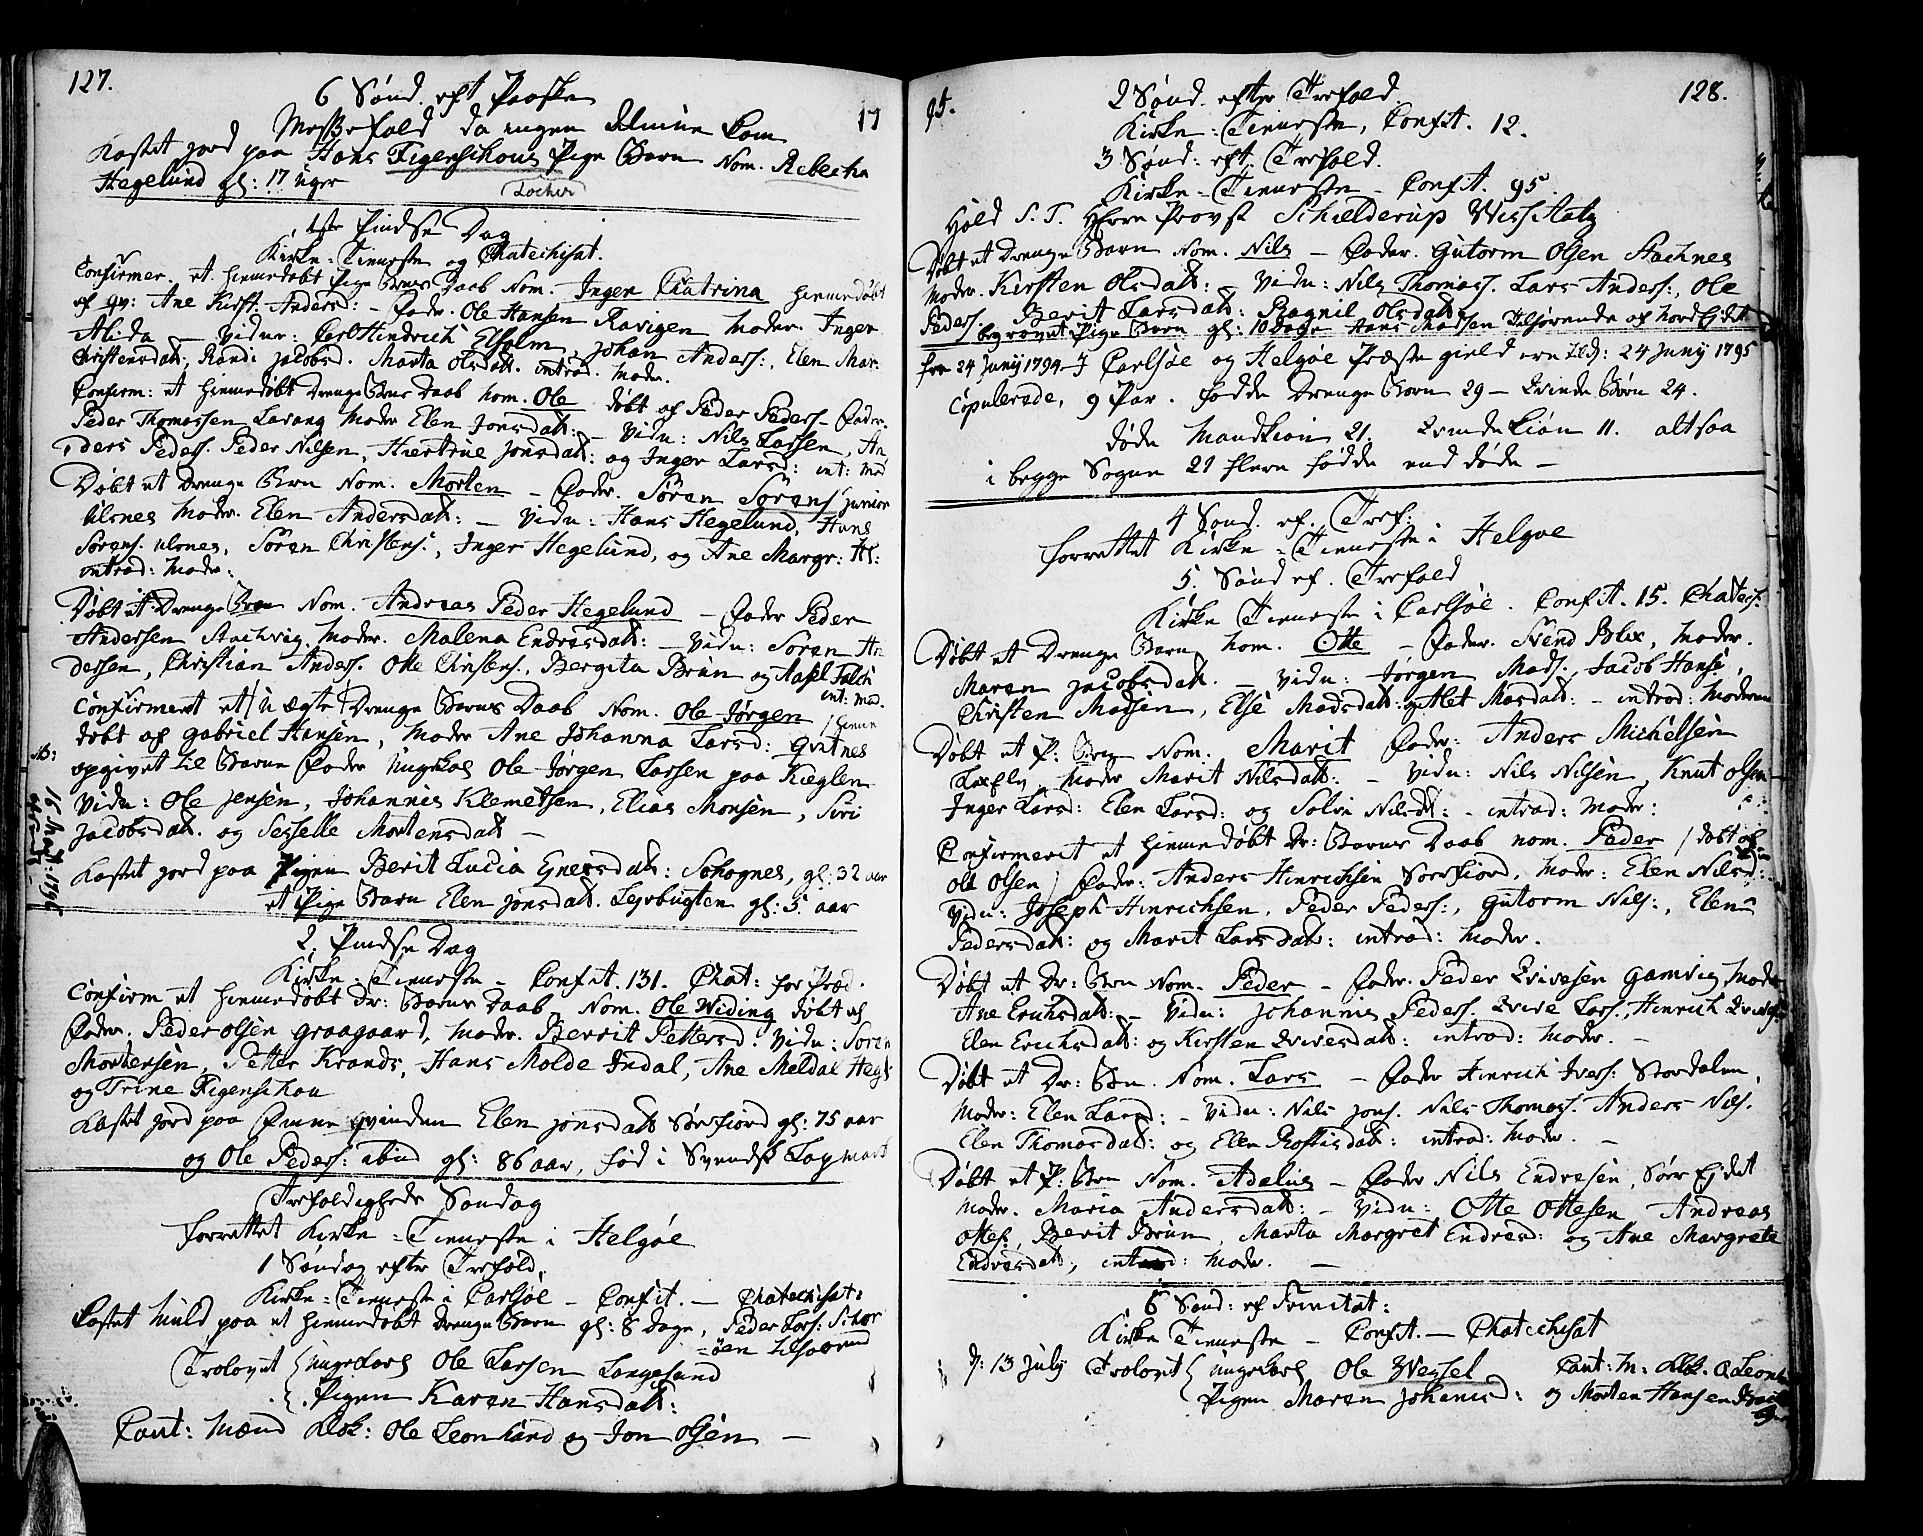 127.
17
6 Sönd. eft Paaske
Messefald da ingen Almue kom
Kastet jord paa Hans Figenschous Pige Barn Nom. Rebecha
Hegelund gl: 17 Uger
1ste Pindse Dag
Kirke-Tieneste og Chatechisat.
Confirmer. et hiemedøbt Pige Barns Daab Nom. Inger Catrina hiemedøbt
af qv: Ane Kirst. Andersd: - Fader. Ole Hansen Ravigen Moder. Inger
Alida - Vidner: Carl Hindrich Elholm, Johan Anderss:, Elen Mar.
Christensdatt, Randi Jacobsd. Marta Olsdatt. introd. Moder.
Confirm: et hiemedøbt Drenge Barns Daab nom. Ole døbt af Peder Peders. Fader.
Peder Thomassen Lavang Moder Elen Jonsdatt: - Vidn: Nils Larsen, An
ders Peders. Peder Nilsen, Hiertrue Jonsdatt: og Inger Larsd: int: Mod
Døbt et Drenge Barn Nom. Morten - Fader. Søren Sørens. junior
Ulsnes Moder. Elen Andersdatt: - Vidn: Hans Hegelund, Hans
Sørens. Ulsnes, Søren Christens:, Inger Hegelund, og Ane Margr: Hl:
introd: Moder:
Døbt et Drenge Barn Nom. Andreas Peder Hegelund - Fader Peder
Andersen Moder. Malena Endresdatt: - Vidn: Søren An
dersen, Christian Anders. Otte Christens., Bergita Brun og Aasel Falch
int: Mod.
Confirmeret et Uægte Drenge Barns Daab Nom. Ole Jørgen / hieme
døbt af Gabriel Hansen, Moder Ane Johanna Larsd: Gvitnes
NB:
opgivet til Barne Fader Ungkarl Ole Jørgen Larsen paa
Vidn: Ole Jensen, Johannis Klemetsen, Elias Monsen, Siri
Jacobsdatt. og Sesselle Mortensdatt -
Kastet jord paa Pigen Berit Lucia Sohognes, gl: 32 aar
et Pige Barn Elen Jonsdatt. Lejrbugten gl: 5. aar
2. Pindse Dag
Kirke-Tieneste - Confit. 131. Chat: for Præd.
Confirm et hiemedøbt Dr: Barns Daab Nom. Ole Widing døbt af
Fader. Peder Olsen Graagaard, Moder. Berrit Pettersd. Vidn: Søren
Mortensen, Petter Krands, Hans Molde Indal, Ane Meldal Hegl
og Trine Figenschou
Kastet jord paa Qvinden Elen Jonsdatt Sørfiord gl: 75 aar
og Ole Peders: gl: 86 aar, fød i Svendsk Lapmark
Trefoldigheds Sondag
forrettet Kirke-Tieneste i Helgøe
1 Søndag efter Trefold.
Kirke-Tieneste i Carlsøe - Confit. - Chatechisat:
Castet Muld paa et hiemedøbt Drenge Barn gl: 8 Dage, Peder Lars:
Trolovet Ungekarl Ole Larsen Langesund
Pigen Karen Hansdatt:
Caut: Mænd Klok: Ole Leonhard og Jon Olsen -
95.
128.
2 Sønd. efter Trefold.
Kirke-Tieneste, Confit. 12.
3 Sønd: eft. Trefold.
Kirke-Tieneste - Confit. 95.
Hold S. T. Herr Provst Schielderup Vissitatz
Døbt et Drenge Barn Nom. Nils - Fader. Gutorm Olsen Stachnes
Moder. Kirsten Olsdatt: - Vidn: Nils Thomass. Lars Anders:, Ole
Peders. Berit Larsdatt: Ragnil Olsdatt
begravet Pige Barn gl: 10 Dage Hans Madsen tilhørende af Nord Ejdet
fra 24 Junij 1794 - I Carlsøe og Helgøe Præste gield ere til d: 24 Junij 1795
Copulerede, 9 Par. fødde Drenge Børn 29 - Qvinde Børn 24.
døde Mandkiøn 21. Qvinde Kiøn 11. altsaa
i begge Sogne 21 flere fødde end døde -
4 Sønd. ef. Tref:
forrettet Kirke-Tieneste i Helgøe
5. Sønd ef. Trefold
Kirke Tieneste i Carlsøe. Confit. 15. Chatech:
Døbt et Drenge Barn nom. Otte - Fader. Svend Blix, Moder.
Maren Jacobsdatt. - Vidn: Jørgen Mads., Jacob Hanse,
Christen Madsen, Else Madsdatt: og Alet Masdatt: - introd: Moderen
Døbt et P: Barn Nom. Marit Fader: Anders Michelsen
Moder Marit Nilsdatt: - Vidn: Nils Nilsen, Knut Olsen
Inger Larsd: Elen Larsd: og Solvi Nilsdt: - introd: Moder:
Confirmeret et hiemedøbt Dr: Barns Daab nom. Peder / døbt af
Ole Olsen / Fader: Anders Hinrichsen Sørfiord, Moder: Elen Nilsd:
Vidn: Joseph Hinrichsen, Peder Peders:, Gutorm Nils:, Elen
Pedersdatt: og Marit Larsdatt: introd: Moder.
Døbt et Dr: Brn Nom. Peder - Fader. Peder Qvivesen Gamvig Moder
Ane Erichsdatt: - Vidn: Johannis Peders. Qvive Lars., Hinrich
Elen Erichsdatt: og Kirsten Qvivesdatt: introd: Moder. -
Døbt et Dr: Brn. Nom. Lars - Fader Hinrich Ivers: Stordalen,
Moder: Elen Larsd: - Vidn: Nils Jons. Nils Thomass. Anders Nils.
Elen Thomasdatt: og Elen introd: Moder. -
Døbt et P: Brn Nom. Adelus - Fader Nils Endresen, Sør Ejdet
Moder. Maria Andersdatt: - Vidn: Otte Ottesen Andreas
Ottes., Berit Brun, Marta Margret Endresd: og Ane Margrete
Endresdatt, introd: Moder. -
6 Sønd: ef Trinitat:
Kirke Tieneste - Confit. - Chatechisat
d: 13 July Trolovet Ungekarl Ole Wessel Caut: M: Klok. O Leonh
Pigen Maren Johanisd: og Morten Hansen